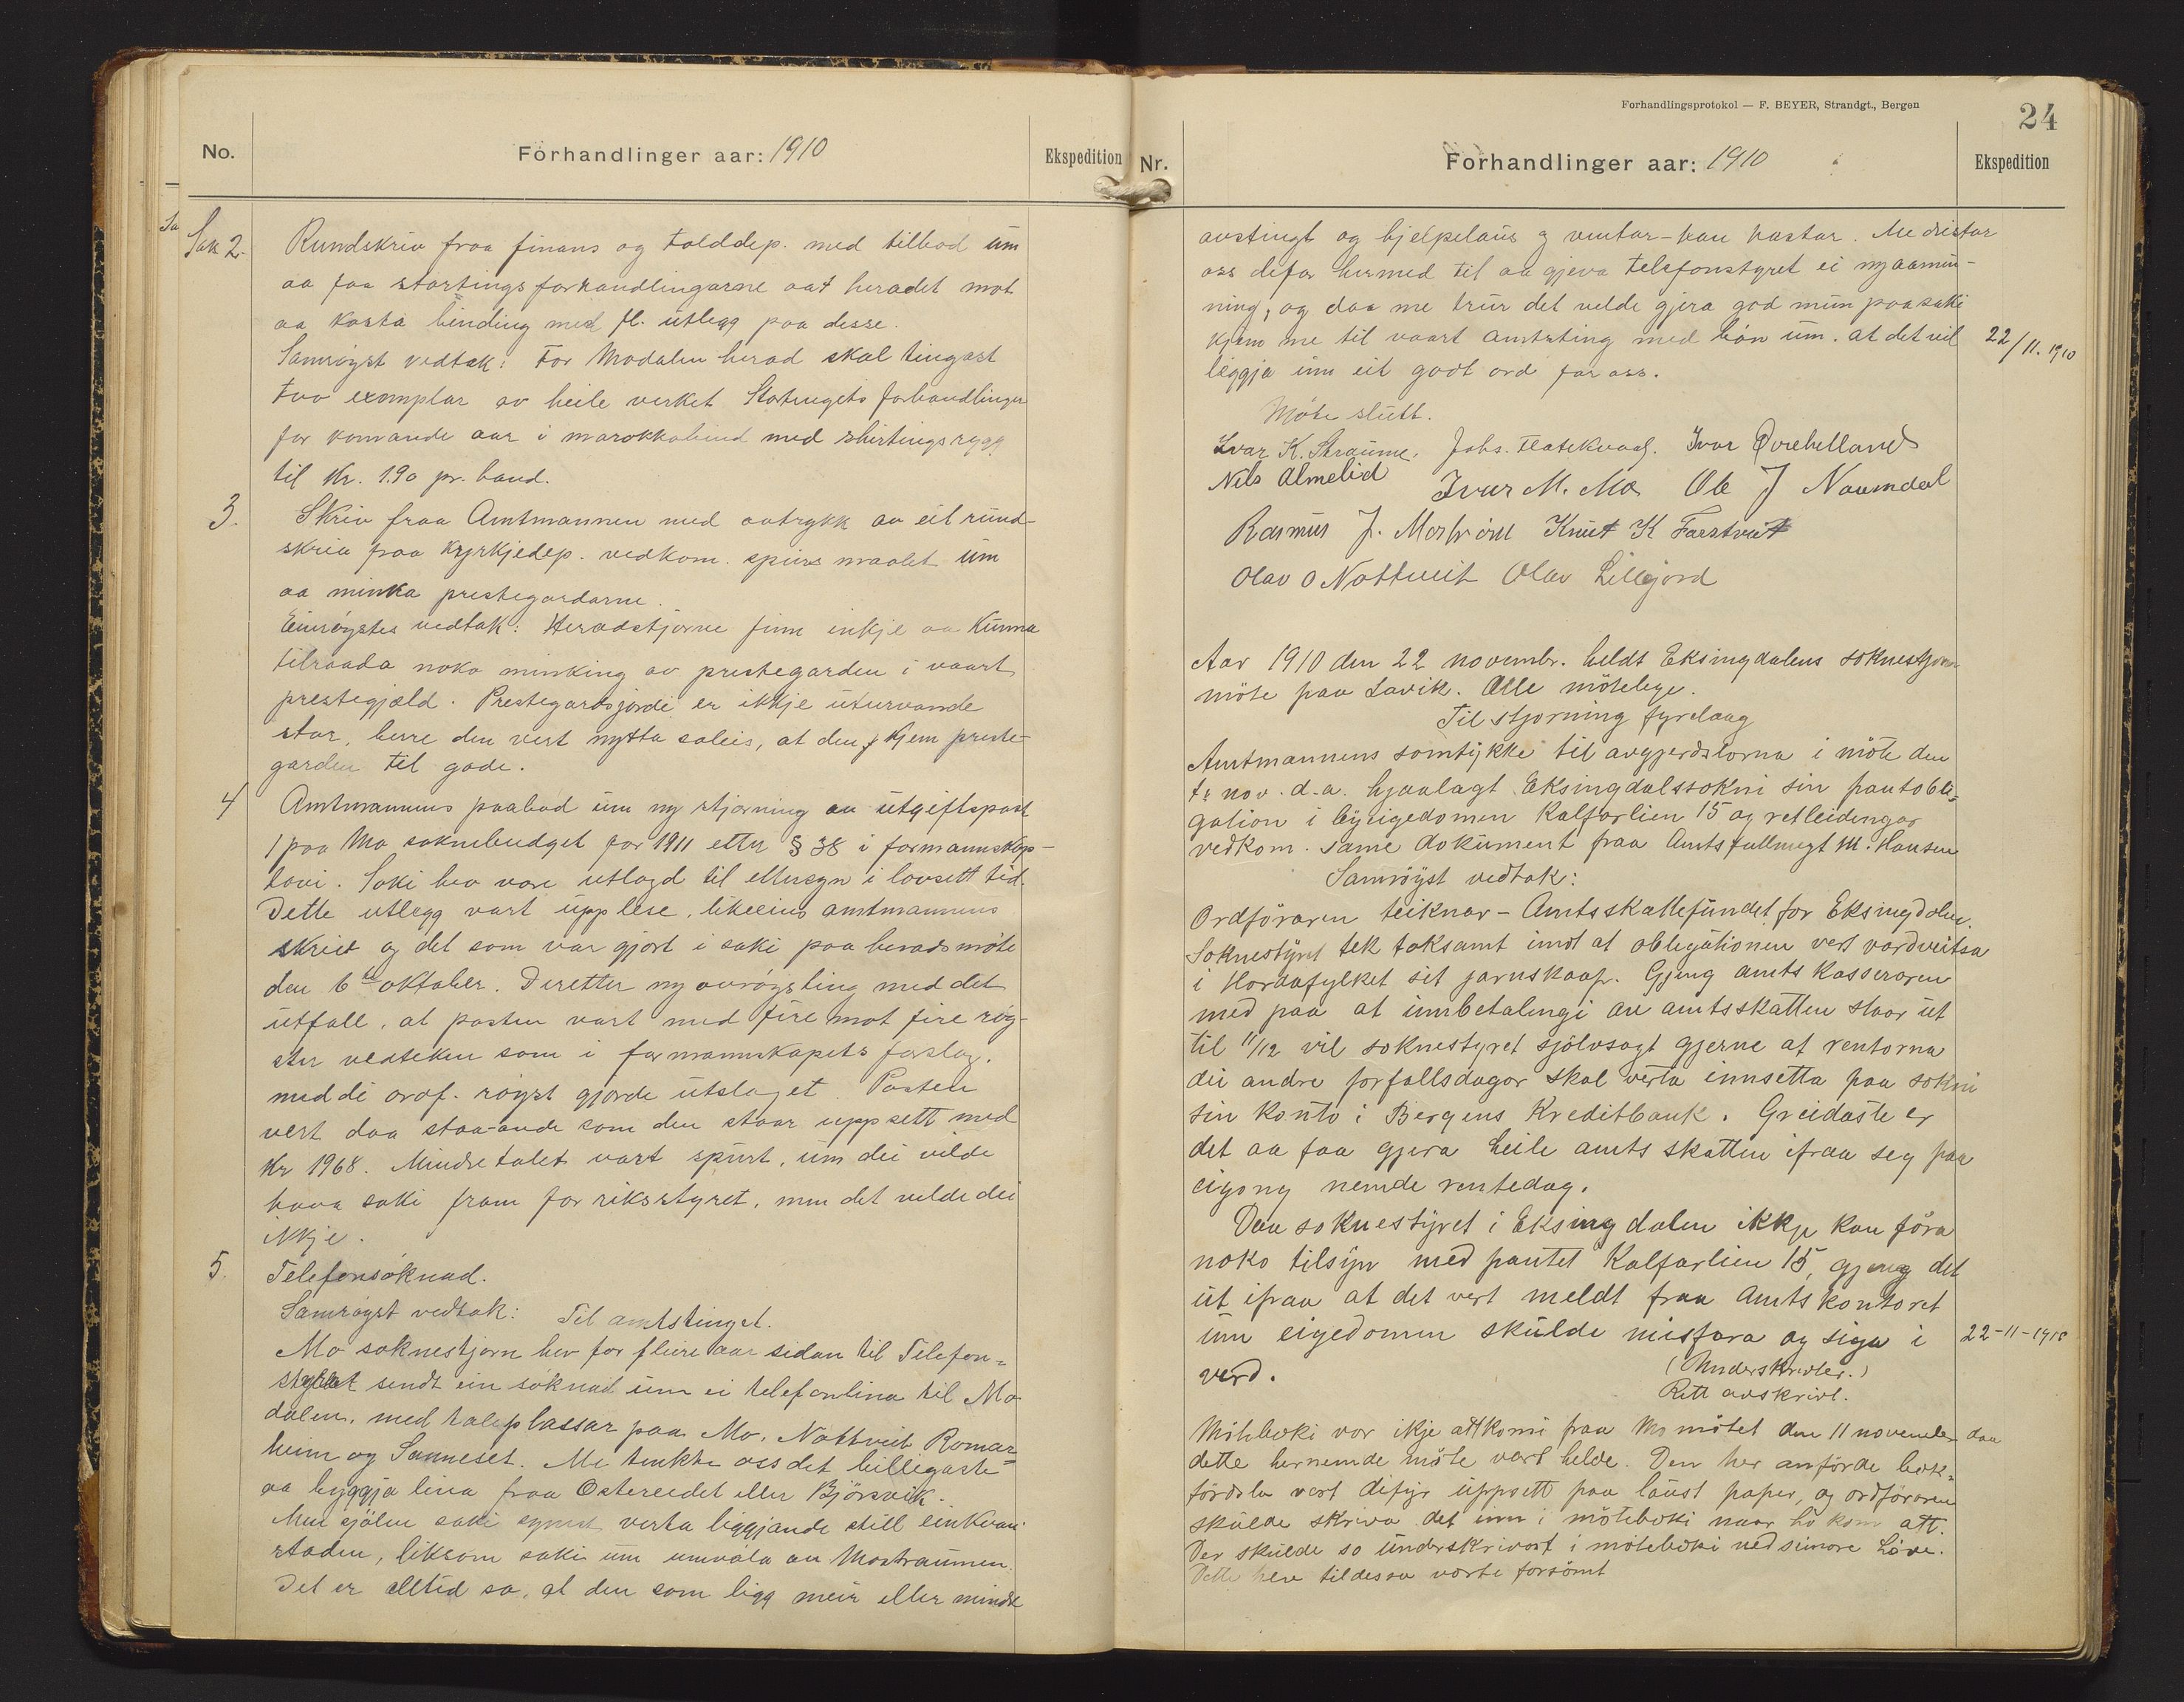 No.
Forhandlinger aar: 1910
Ekspedition
Sak 2.
Rundskriv fraa finans og tolddep. med tilbod um
aa faa stortingsforhandlingarne aat heradet mot
aa kosta binding med fl. utlegg paa desse.
Samrøyst vedtak: For Modalen herad skal tingast
tvo exemplar av heile verket Stortingets forhandlinger
for komande aar i marokkobind med shirtingsrygg
til Kr. 1.90 pr. band.
3.
Skriv fraa Amtmannen med avtrykk av eit rund-
skriv fraa Kyrkjedep. vedkom. spursmaalet um
aa minka prestegardarne.
Einrøystes vedtak: Heradstjorne finn inkje aa kunna
tilraada noko minking av prestegarden i vaart
prestegjæld. Prestegardsjordi er ikkje uturvande
stor, berre den vert nytta soleis, at den kjem preste-
garden til gode.
4
Amtmannens paabod um ny stjorning av utgiftspost
1 paa Mo soknebudget for 1911 etter § 38 i formannskaps-
lovi. Saki hev vore utlagd til ettersyn i lovsett tid.
Dette utlegg vart upplese, likeeins amtmannens
skriv og det som var gjort i saki paa heradsmøte
den 6te oktober. Deretter ny avrøysting med det
utfall, at posten vart med fire mot fire røy-
ster vedteken som i formannskapets forslag.
med di ordf. røyst gjorde utslaget. Posten
vert daa staa-ande som den staar uppsett med
Kr 1968. Mindretalet vart spurt, um dei vilde
hava saki fram for riksstyret, men det vilde dei
ikkje.
5.
Telefonsøknad.
Samrøyst vedtak: Til amtstinget.
Mo soknestjorn hev for fleire aar sidan til Telefon-
styret sendt ein søknad um ei telefonlina til Mo-
dalen, med taleplassar paa Mo, Nottveit Romar-
heim og Sanneset. Me tenkte oss det billigaste
aa byggja lina fraa Ostereidet eller Bjørsvik.
Men sjølve saki synest verta liggjande still einkvan
staden, liksom saki um umvøla av Mostraumen.
Det er alltid so, at den som ligg meir eller mindre
Forhandlingsprotokol — F. BEYER, Strandgt., Bergen
24
Nr.
Forhandlinger aar: 1910
Ekspedition
avstengt og hjelpelaus og ventar – kan hastar. Me drister
oss difor hermed til aa gjeva telefonstyret ei nyaamin-
ning, og daa me trur det vilde gjera god mun paa saki
kjem me til vaart amtsting med bøn um, at det vil
22/11. 1910
leggja inn eit godt ord for oss.
Møte slutt.
Ivar K. Straume. Johs. Flatekvaal. Ivar Øvrehelland
Nils Almelid Ivar M. Mo Ole J Naumdal
Rasmus J. Mostraum Knut K Farstveit
Olav O Nottveit Olav Lillejord
Aar 1910 den 22 novembr. heldt Eksingdalens soknestjorn
møte paa Lavik. Alle møtelege.
Til stjorning fyrelaag
Amtmannens samtykke til avgjerdslorna i møte den
1ste nov. d.a. hjaalagt Eksingdalssokni sin pantobli-
gation i byeigedomen Kalfarlien 15 og retleidingar
vedkom. same dokument fraa Amtsfullmegt M. Hansen
Samrøyst vedtak:
Ordføraren teiknar – Amtsskattefundet for Eksingdalen.
Soknestyret tek taksamt imot at obligationen vert vardveitsa
i Hordafylket sit jarnskaap. Gjeng amtskasseraren
med paa at innbetalingi av amtsskatten staar ut
til 11/12 vil soknestyret sjølvsagt gjerne at rentorna
dei andre forfallsdagar skal verta innsetta paa sokni
sin konto i Bergens Kreditbank. Greidaste er
det aa faa gjera heile amtsskatten ifraa seg paa
eigong nemde rentedag.
Daa soknestyret i Eksingdalen ikkje kan føra
noko tilsyn med pantet Kalfarlien 15, gjeng det
ut ifraa at det vert meldt fraa Amtskontoret
um eigedomen skulde misfara og siga i
22-11-1910
verd.
(Underskrifter.)
Rett avskrivt.
Møteboki var ikje attkomi fraa Mo møtet den 11 november daa
dette hernemde møte vart helde. Den her anførde bok-
førdsla vart difyr uppsett paa laust papir, og ordføraren
skulde skriva det inn i møteboki naar ho kom att.
Der skulde so underskrivast i møteboki ved seinare høve.
Dette hev tildessa vorte forsømt